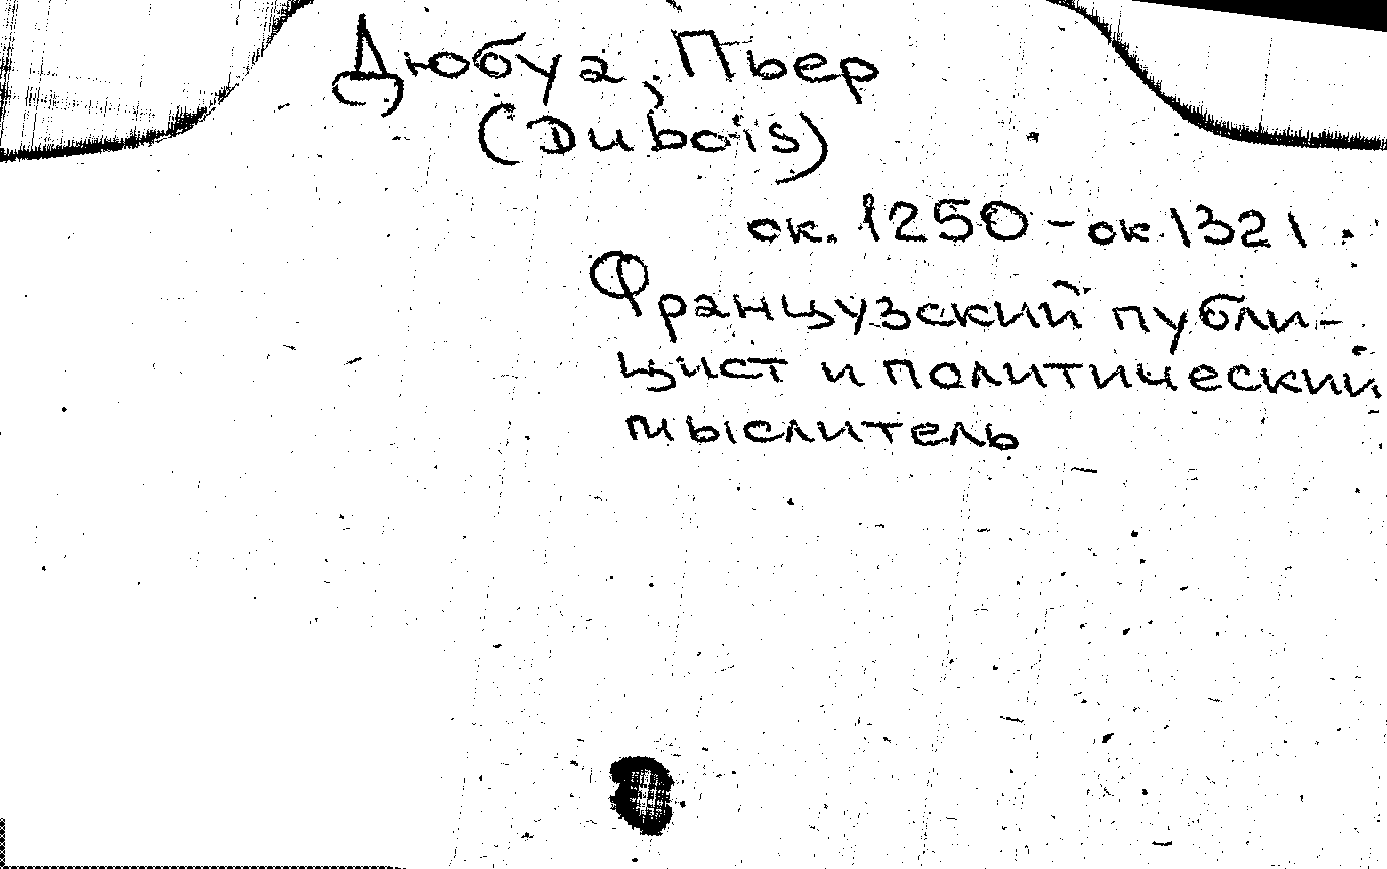 Дюбуа, Пьер
(Dubois)
ок. 1250 - ок 1321.
Французский публи-
цист и политический
мыслитель